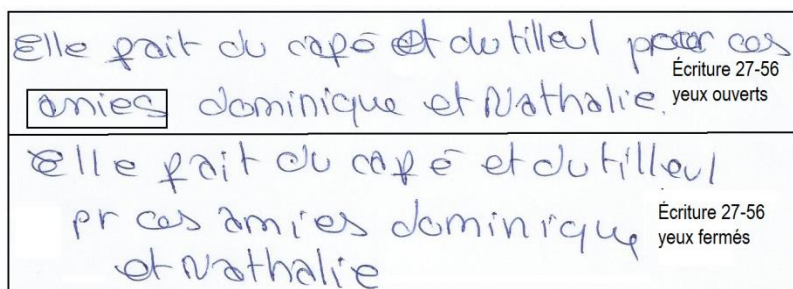 Elle fait du café et du tilleul pour cos
amies dominique et Nathalie.
Écriture 27-56
yeux ouverts
Elle fait du café et du tilleul
pr cos amies dominique
et Nathalie
Écriture 27-56
yeux fermés